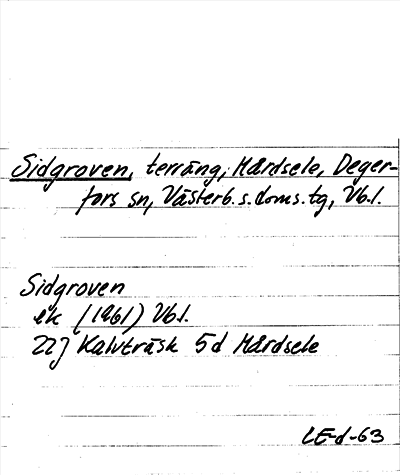 Sidgroven, terräng, Mårdsele, Deger-
fors sn, Västerb.s.doms.tg, Vb.l.
Sidgroven
ek (1961) Vb.l.
22J Kalvträsk 5d Mårdsele
LE-d-63